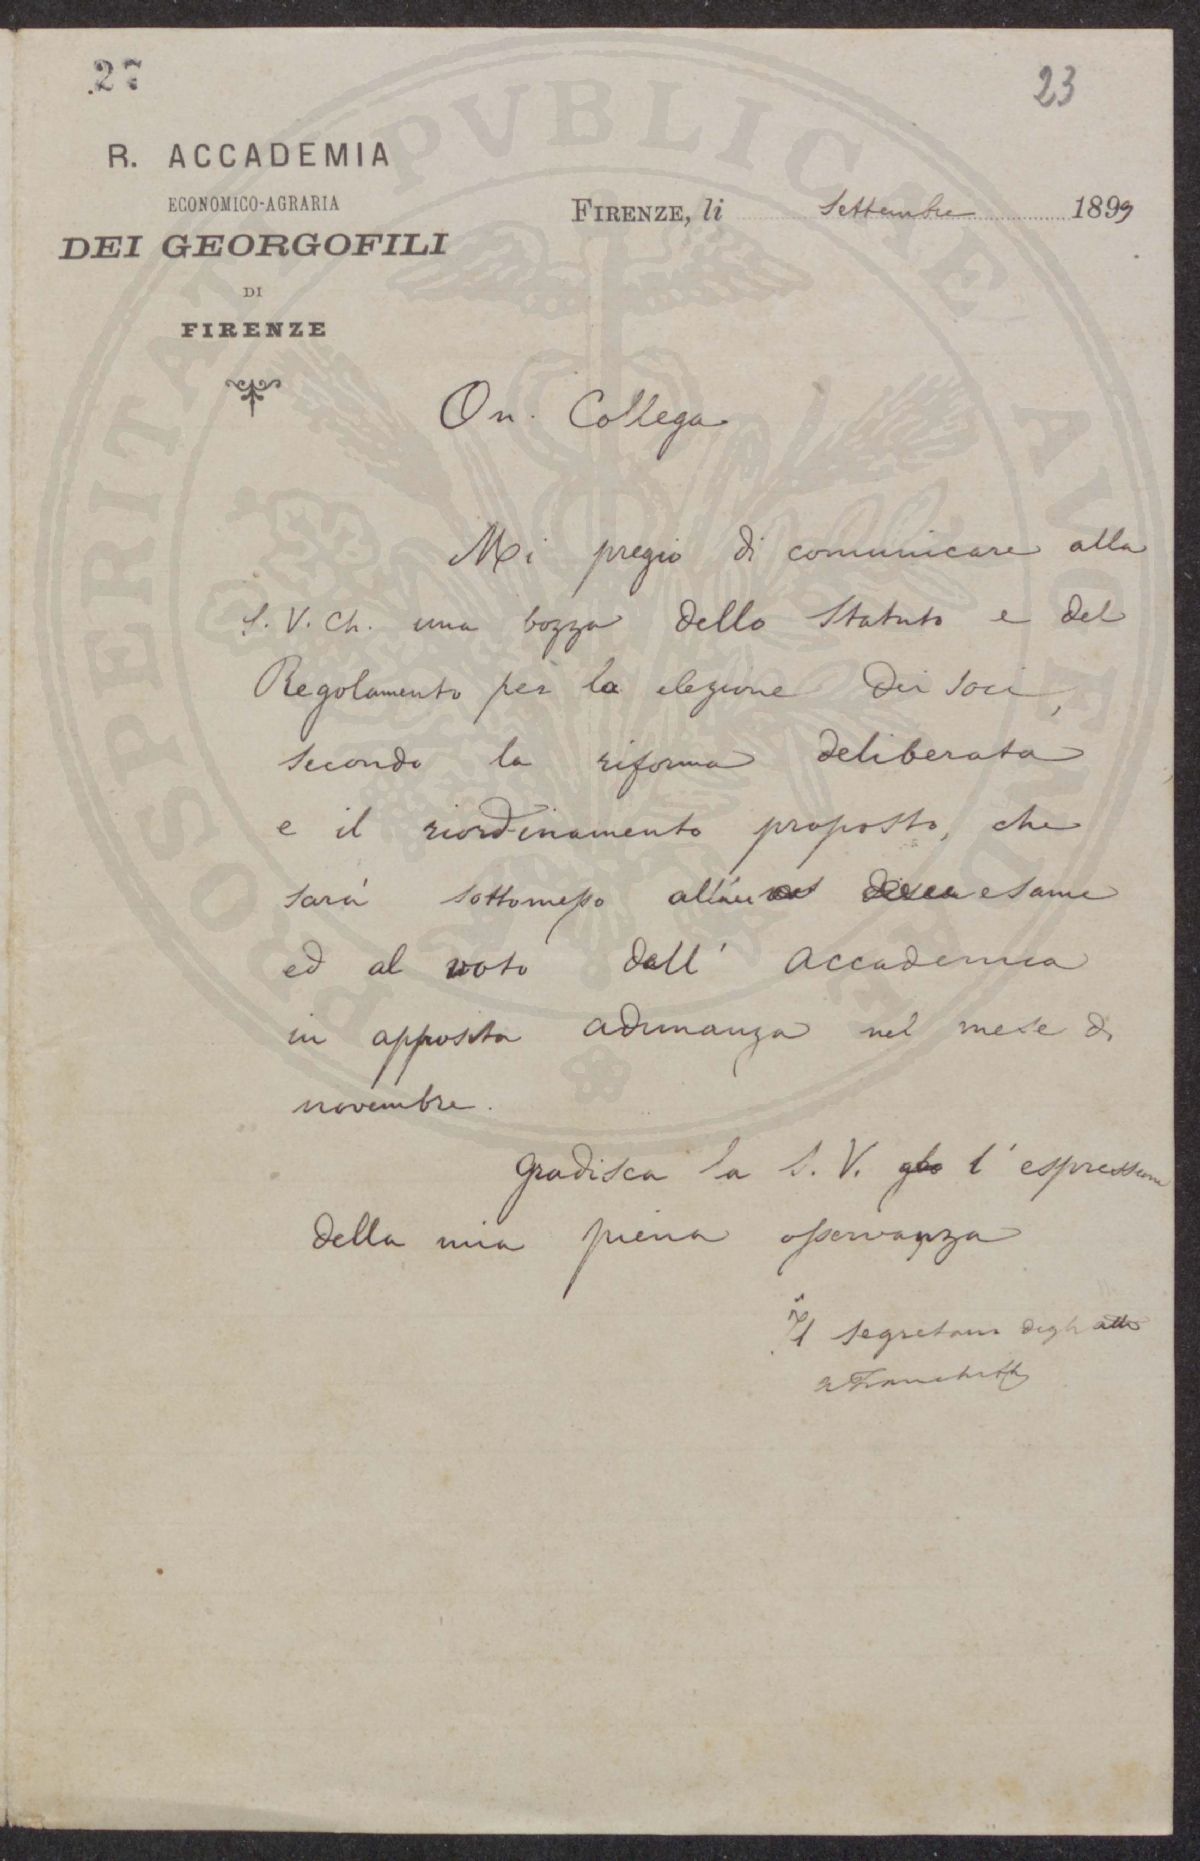 27
23
R. ACCADEMIA
ECONOMICO-AGRARIA
DEI GEORGOFILI
DI
FIRENZE
FIRENZE, li Settembre 1899
PROSPERITATI PVBLICAE AVGENDAE
On. Collega
Mi pregio di comunicare alla
S. V. Ch. una bozza dello Statuto e del
Regolamento per la elezione dei soci,
secondo la riforma deliberata
e il riordinamento proposto, che
sarà sottomesso esame
ed al voto dell' Accademia
in apposita adunanza nel mese di
novembre.
Gradisca la S. V. l' espressione
della mia piena osservanza
Il segretario degli atti
Franchetti